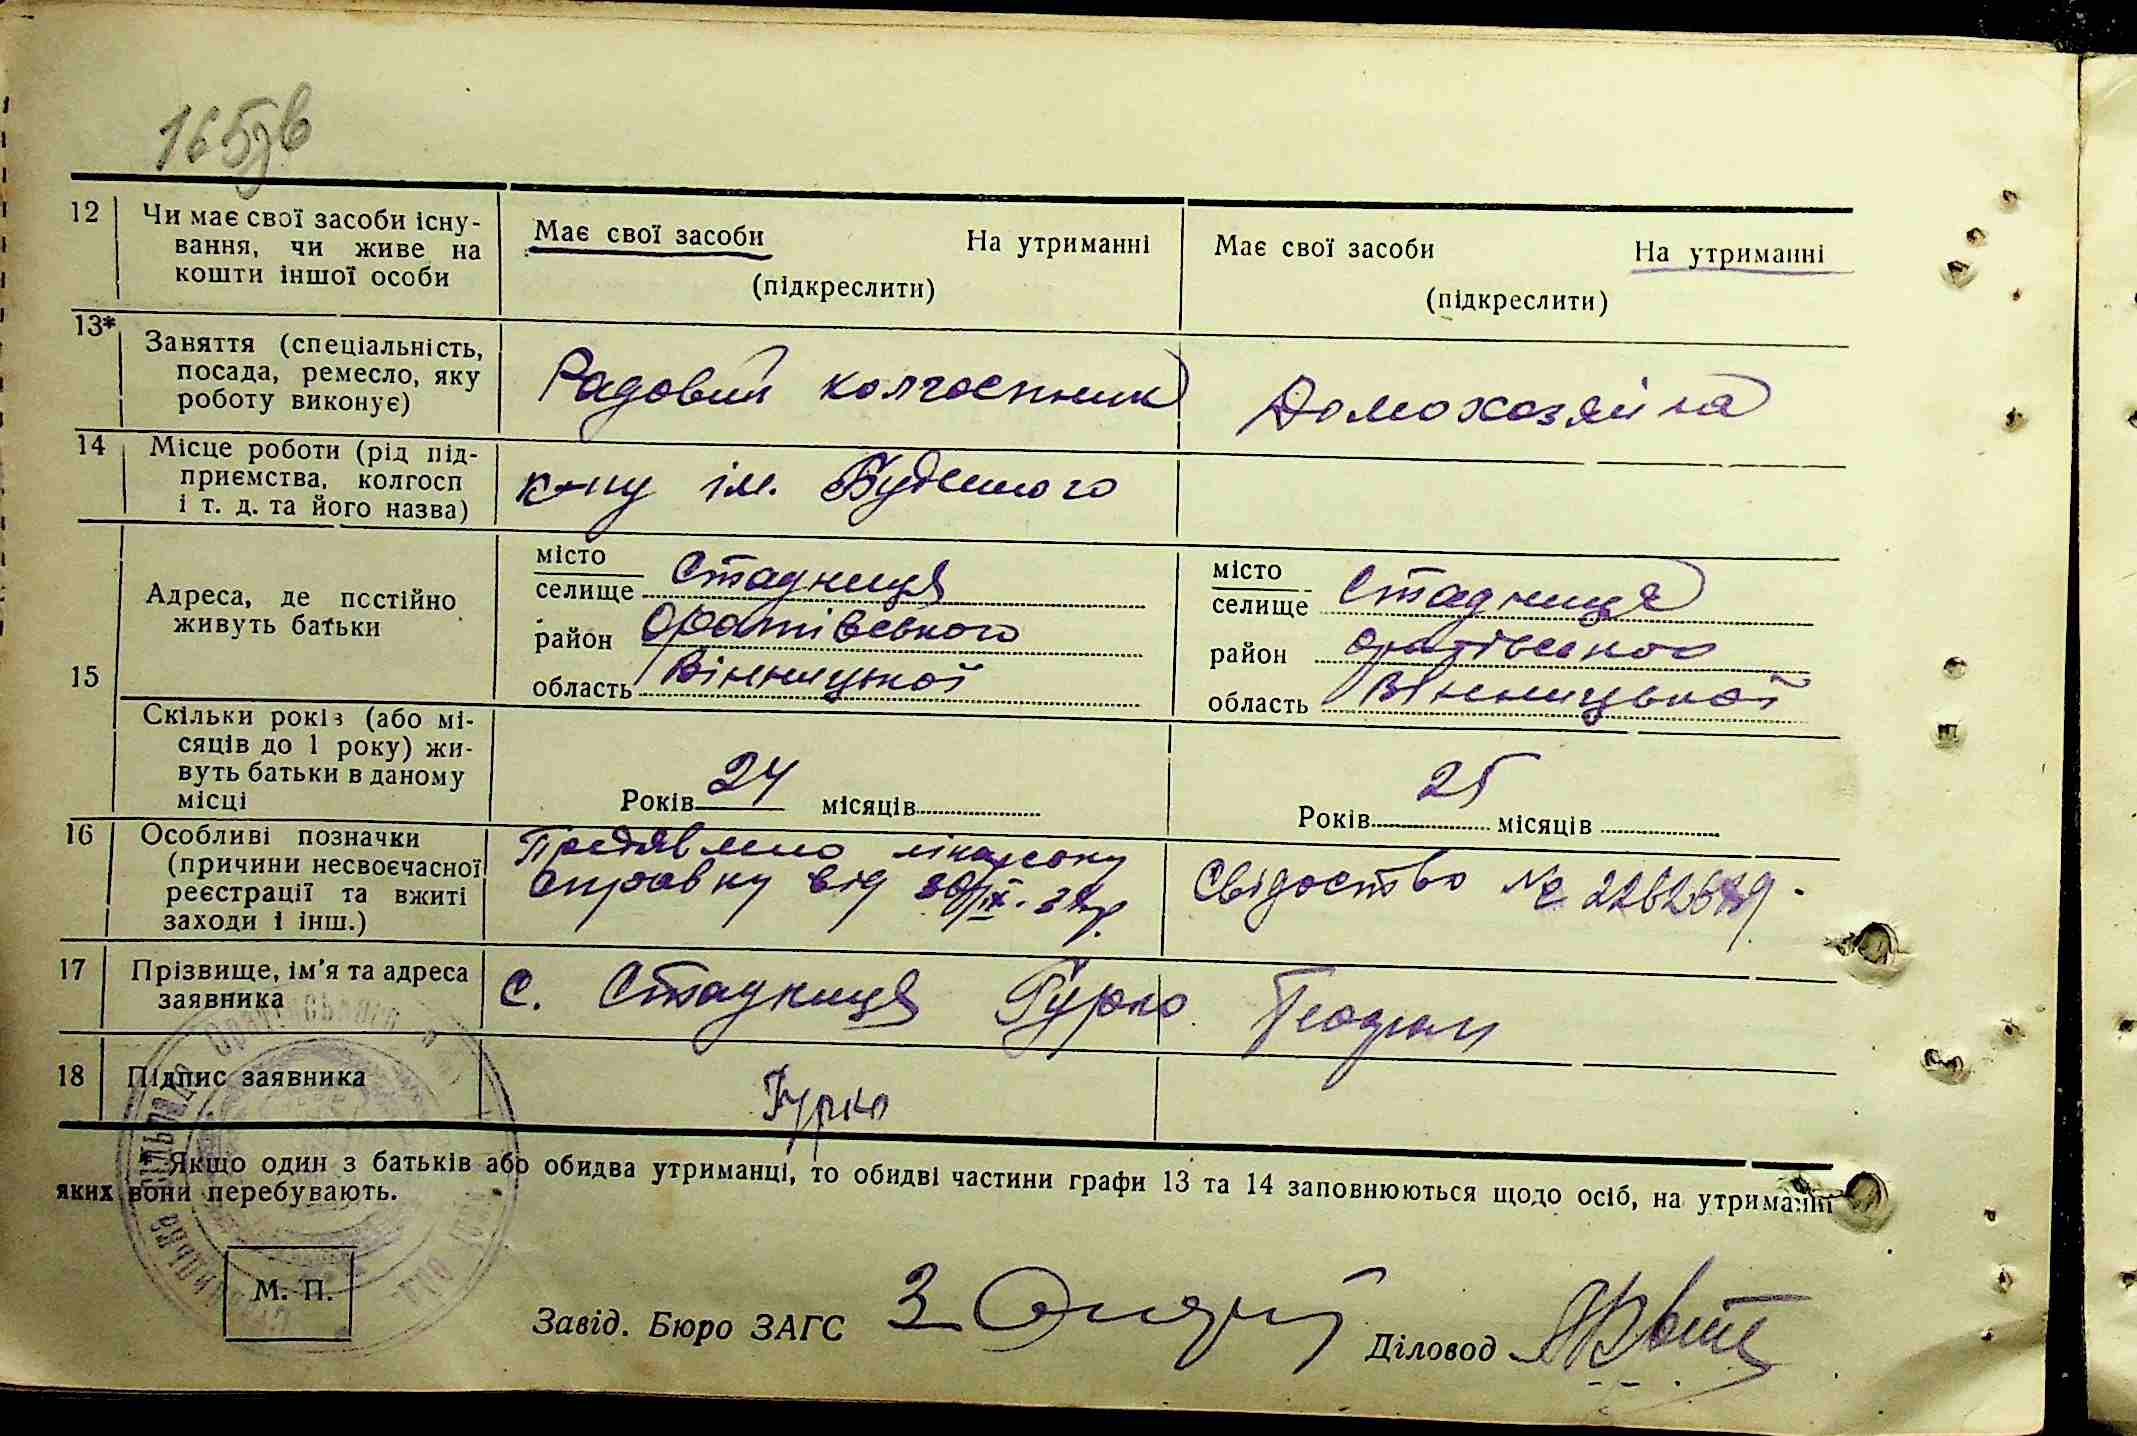 165зв
12 Чи має свої засоби існу-
вання, чи живе на
кошти іншої особи
Має свої засоби На утриманні
(підкреслити)
Має свої засоби На утриманні
(підкреслити)
13* Заняття (спеціальність,
посада, ремесло, яку
роботу виконує)
Радовий колгоспник
Домохозяйка
14 Місце роботи (рід під-
приємства, колгосп
і т. д. та його назва)
к-пу ім. Будьоного
15 Адреса, де постійно
живуть батьки
місто
селище Стадниця
район Оратівського
область Вінницької
місто
селище Стадниця
район Оратівського
область Вінницької
Скільки років (або мі-
сяців до 1 року) жи-
вуть батьки в даному
місці
Років 24 місяців
Років 25 місяців
16 Особливі позначки
(причини несвоєчасної
реєстрації та вжиті
заходи і інш.)
Предявлено лікарську
справку від
Свідоство №
17 Прізвище, ім'я та адреса
заявника
с. Стадниця Гурко
18 Підпис заявника
Гурко
* Якщо один з батьків або обидва утриманці, то обидві частини графи 13 та 14 заповнюються щодо осіб, на утриманні
яких вони перебувають.
М. П.
Завід. Бюро ЗАГС
Діловод